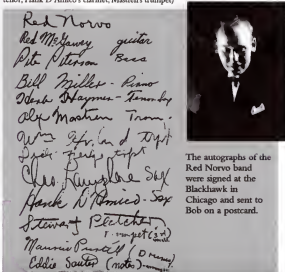 tenor, Hank D'Amico's clarinet, Mastren's trumpet)
Red Norvo
Red McGarvey guitar
Pete Peterson Bass
Bill Miller - Piano
Herb Haymer - Tenor Sax
Alex Mastren Trom.
Wm
Chas. Lamphere Sax
Hank D'Amico - Sax
Stewart Pletcher
Maurice Purtill (Drums)
Eddie Sauter (notes)
The autographs of the
Red Norvo band
were signed at the
Blackhawk in
Chicago and sent to
Bob on a postcard.